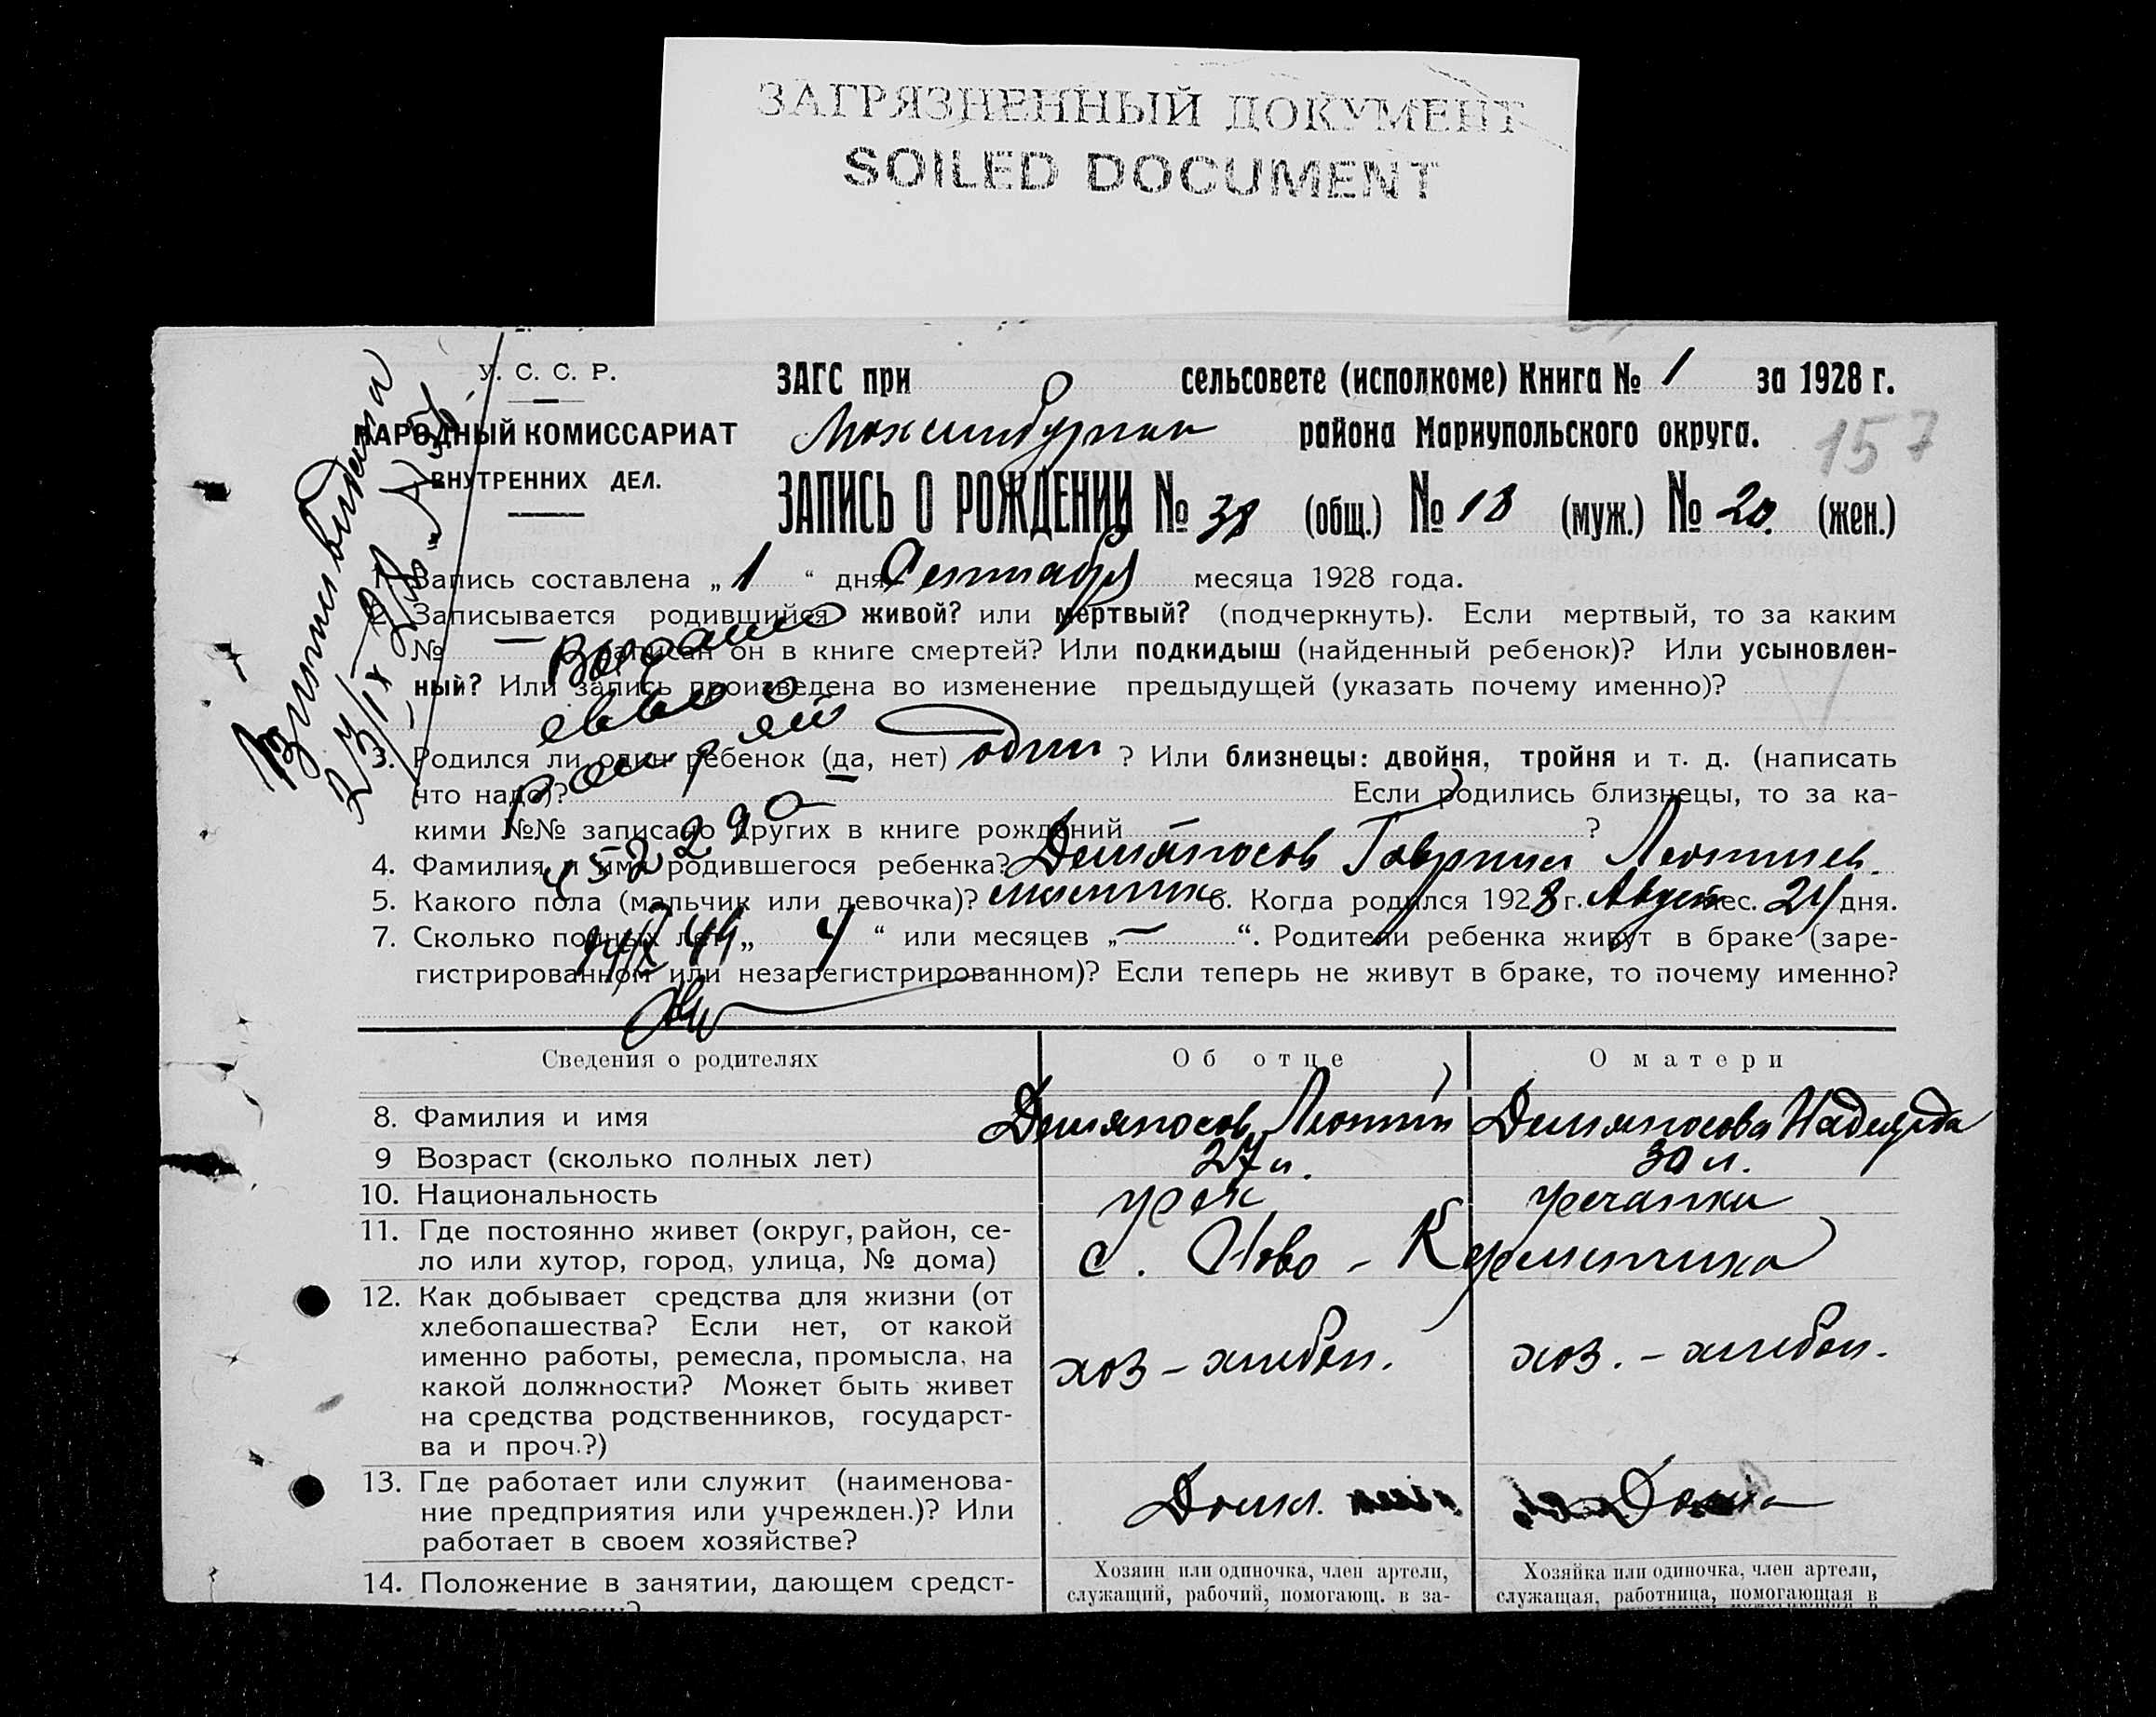 ЗАГРЯЗНЕННЫЙ ДОКУМЕНТ
SOILED DOCUMENT
У. С. С. Р.
НАРОДНЫЙ КОМИССАРИАТ
ВНУТРЕННИХ ДЕЛ.
ЗАГС при сельсовете (исполкоме) Книга № 1 за 1928 г.
района Мариупольского округа.
157
ЗАПИСЬ О РОЖДЕНИИ № 38 (общ.) № 18 (муж.) № 20 (жен.)
1. Запись составлена „ 1 “ дня Сентября месяца 1928 года.
2. Записывается родившийся живой? или мертвый? (подчеркнуть). Если мертвый, то за каким
№ — записан он в книге смертей? Или подкидыш (найденный ребенок)? Или усыновлен-
ный? Или запись произведена во изменение предыдущей (указать почему именно)?
3. Родился ли один ребенок (да, нет) один ? Или близнецы: двойня, тройня и т. д. (написать
что надо)? Если родились близнецы, то за ка-
кими №№ записано других в книге рождений — ?
4. Фамилия и имя родившегося ребенка? Гавриил
5. Какого пола (мальчик или девочка)? 6. Когда родился 1928 г. Август мес. 24 дня.
7. Сколько полных лет „ 4 “ или месяцев „ — “. Родители ребенка живут в браке (заре-
гистрированном или незарегистрированном)? Если теперь не живут в браке, то почему именно?
Сведения о родителях Об отце О матери
8. Фамилия и имя Леонтий Надежда
9 Возраст (сколько полных лет) 27 л. 30 л.
10. Национальность грек гречанка
11. Где постоянно живет (округ, район, се-
ло или хутор, город, улица, № дома) с. Ново - Керменчик
12. Как добывает средства для жизни (от
хлебопашества? Если нет, от какой
именно работы, ремесла, промысла, на
какой должности? Может быть живет
на средства родственников, государст-
ва и проч.?)
хоз - хлебоп. хоз. - хлебоп.
13. Где работает или служит (наименова-
ние предприятия или учрежден.)? Или
работает в своем хозяйстве?
14. Положение в занятии, дающем средст-
Хозяин или одиночка, член артели,
служащий, рабочий, помогающ. в за-
Хозяйка или одиночка, член артели,
служащая, работница, помогающая в